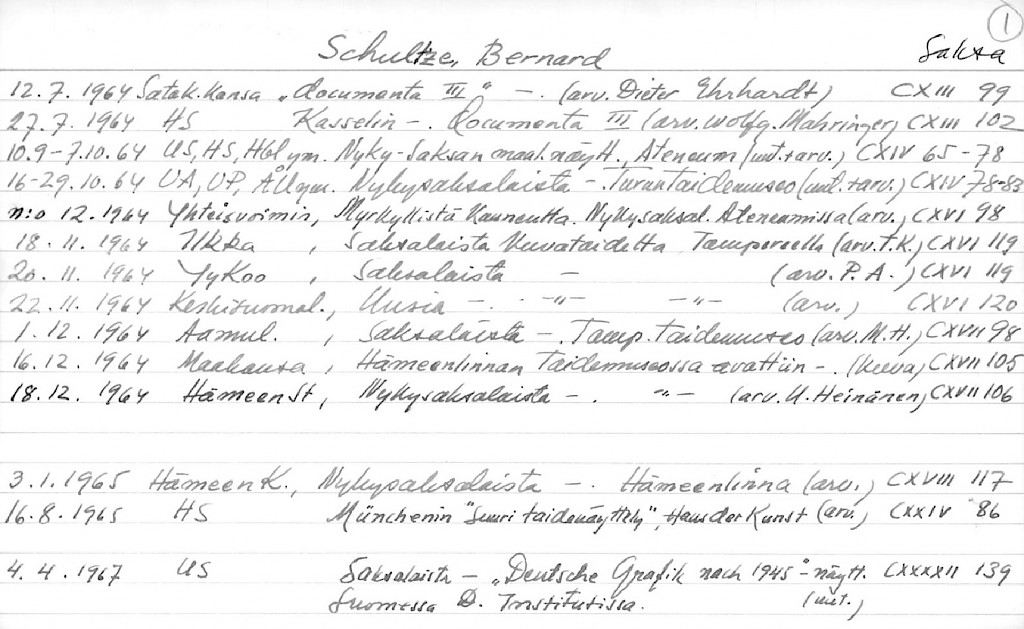 1
Schultze, Bernard Saksa
12.7.1964 Satak.Kansa „documenta III“ –. (arv. Dieter Ehrhardt) CXIII 99
27.7.1964 HS Kasselin –. Documenta III (arv. Wolfg. Mahringer) CXIII 102
10.9–7.10.64 US, HS, Hbl ym. Nyky-Saksan maal.näytt., Ateneum (uut.+arv.) CXIV 65–78
16–29.10.64 UA, UP, ÅU ym. Nykysaksalaista –. Turun Taidemuseo (uut.+arv.) CXIV 78–83
n:o 12.1964 Yhteisvoimin, Myrkyllistä Kauneutta. Nykysaksal. Ateneumissa (arv.) CXVI 98
18.11.1964 Ilkka, Saksalaista kuvataidetta Tampereella (arv. T.K.) CXVI 119
20.11.1964 JyKoo, Saksalaista – (arv. P.A.) CXVI 119
22.11.1964 Keskisuomal., Uusia –. –"– –"– (arv.) CXVI 120
1.12.1964 Aamul., Saksalaista –. Tamp. taidemuseo (arv. M.H.) CXVII 98
16.12.1964 Maakansa, Hämeenlinnan Taidemuseossa avattiin –. (kuva) CXVII 105
18.12.1964 HämeenSt, Nykysaksalaista –. –"– (arv. U. Heinänen) CXVII 106
3.1.1965 Hämeen K., Nykysaksalaista –. Hämeenlinna (arv.) CXVIII 117
16.8.1965 HS Münchenin "Suuri taidenäyttely", Haus der Kunst (arv.) CXXIV 86
4.4.1967 US Saksalaista – „Deutsche Grafik nach 1945"-näytt. CXXXII 139
Suomessa D. Institutissa. (uut.)